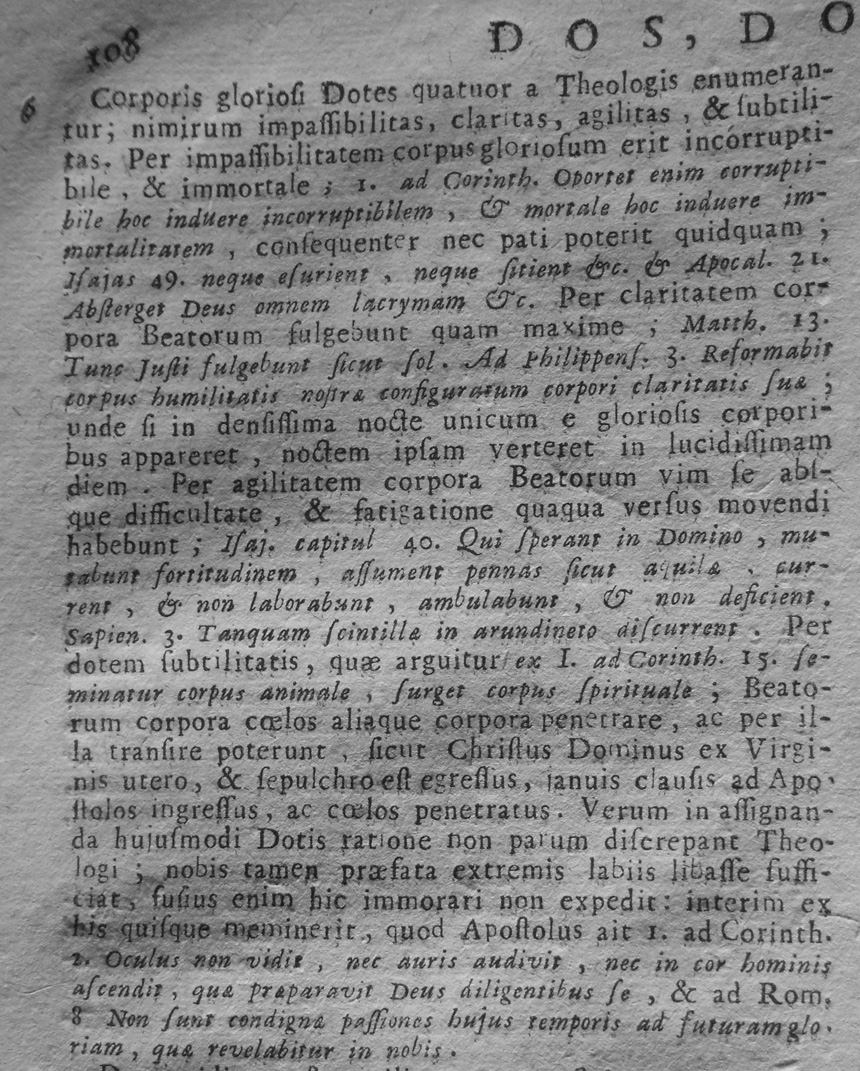 108
D O S, D O
6 Corporis glorioſi Dotes quatuor a Theologis enumeran-
tur; nimirum impaſſibilitas, claritas, agilitas, & ſubtili-
tas. Per impaſſibilitatem corpus glorioſum erit incórrupti-
bile, & immortale; 1. ad Corinth. Oportet enim corrupti-
bile hoc induere incorruptibilem, & mortale hoc induere im-
mortalitatem, conſequenter nec pati poterit quidquam;
Iſajas 49. neque eſurient, neque ſitient &c. & Apocal. 21.
Abſterget Deus omnem lacrymam &c. Per claritatem cor-
pora Beatorum fulgebunt quam maxime; Matth. 13.
Tunc Juſti fulgebunt ſicut ſol. Ad Philippenſ. 3. Reformabit
corpus humilitatis noſtræ configuratum corpori claritatis ſuæ;
unde ſi in denſiſſima nocte unicum e glorioſis corpori-
bus appareret, noctem ipſam verteret in lucidiſſimam
diem. Per agilitatem corpora Beatorum vim ſe abſ-
que difficultate, & fatigatione quaqua verſus movendi
habebunt; Iſaj. capitul 40. Qui ſperant in Domino, mu-
tabunt fortitudinem, aſſument pennas ſicut aquilæ, cur-
rent, & non laborabunt, ambulabunt, & non deficient.
Sapien. 3. Tanquam ſcintillæ in arundineto diſcurrent. Per
dotem ſubtilitatis, quæ arguitur ex I. ad Corinth. 15. ſe-
minatur corpus animale, ſurget corpus ſpirituale; Beato-
rum corpora cœlos aliaque corpora penetrare, ac per il-
la tranſire poterunt, ſicut Chriſtus Dominus ex Virgi-
nis utero, & ſepulchro eſt egreſſus, januis clauſis ad Apo-
ſtolos ingreſſus, ac cœlos penetratus. Verum in aſſignan-
da hujuſmodi Dotis ratione non parum diſcrepant Theo-
logi; nobis tamen præfata extremis labiis libaſſe ſuffi-
ciat, fuſius enim hic immorari non expedit: interim ex
his quiſque meminerit, quod Apoſtolus ait 1. ad Corinth.
2. Oculus non vidit, nec auris audivit, nec in cor hominis
aſcendit, quæ præparavit Deus diligentibus ſe, & ad Rom.
8 Non ſunt condignæ paſſiones hujus temporis ad futuram glo-
riam, quæ revelabitur in nobis.